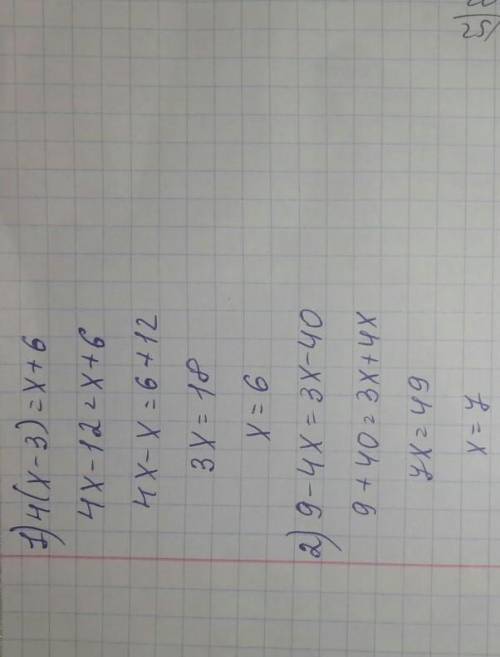 1) 4(x-3)=x+6
4x-12=x+6
4x-x=6+12
3x=18
x=6
2) 9-4x=3x-40
9+40=3x+4x
7x=49
x=7
25